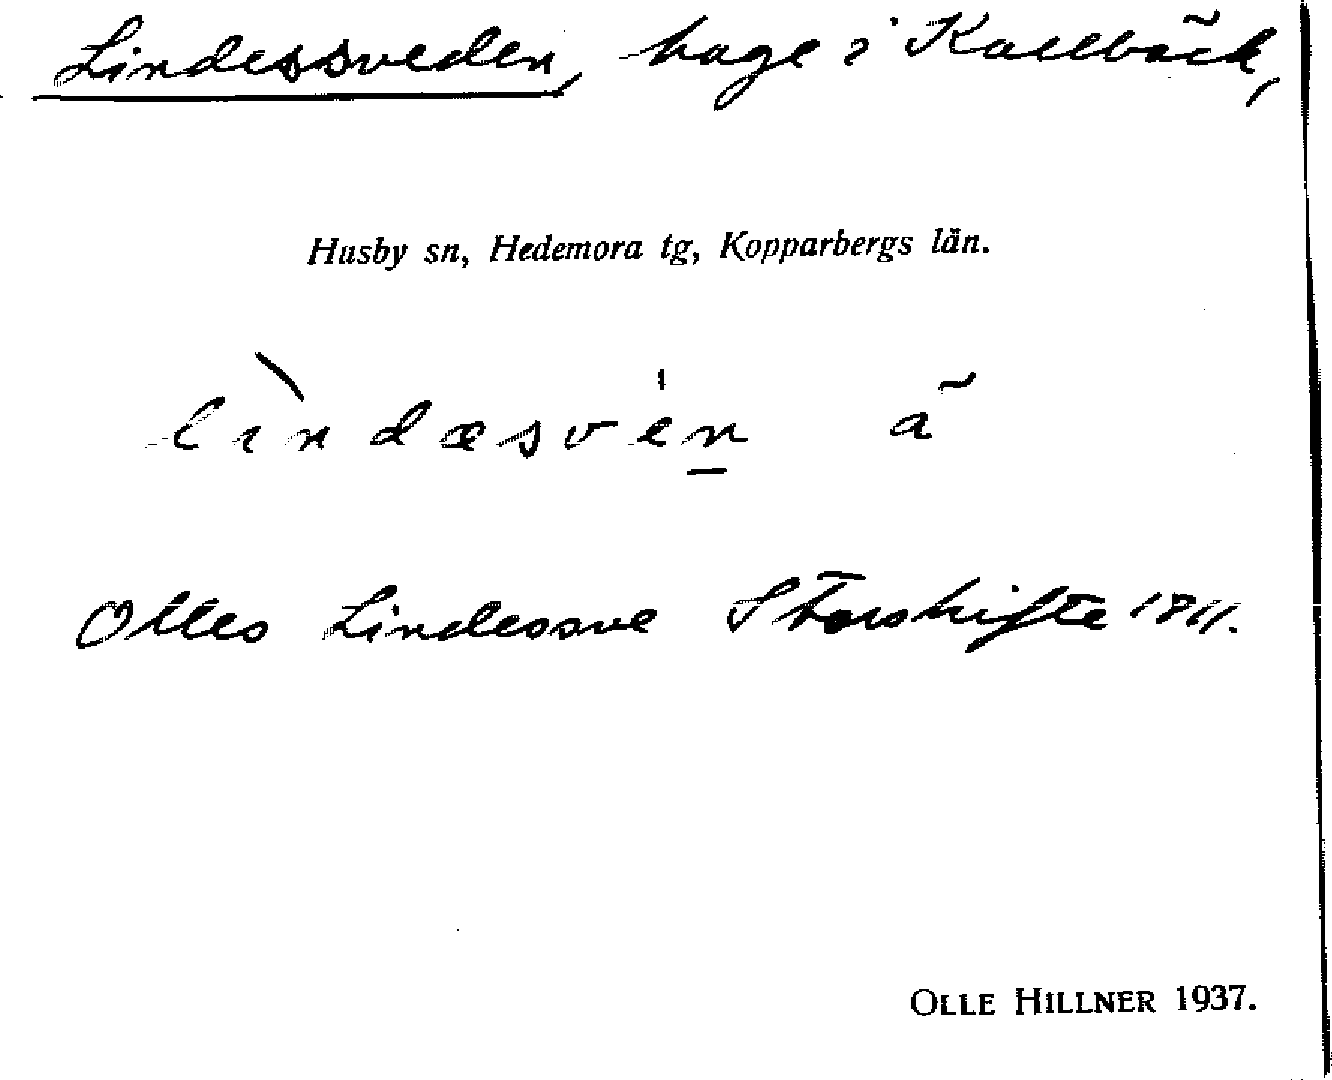 Lindessveden, hage i Kallbäck,
Husby sn, Hedemora tg, Kopparbergs län.
lìndæsven å
Olles Lindessve Storskifte 1811.
OLLE HILLNER 1937.